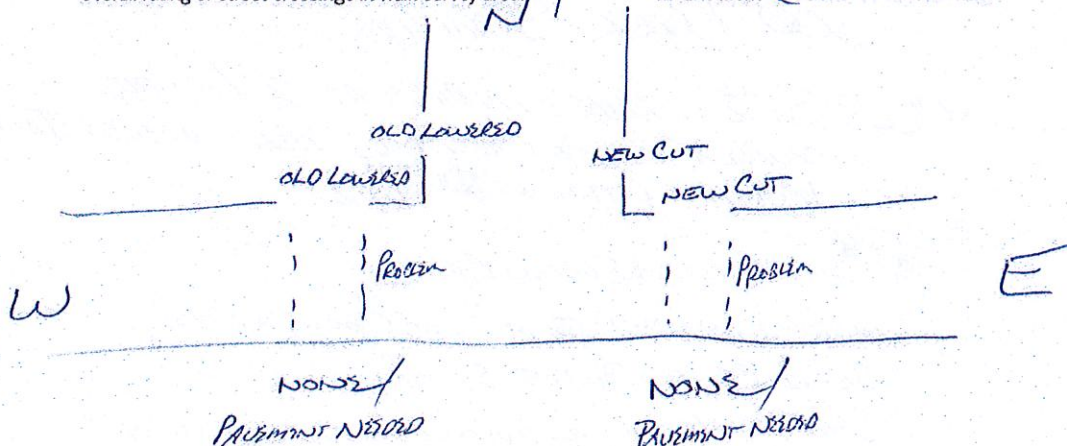 N
OLD LOWERED
NEW CUT
OLD LOWERED
NEW CUT
PROBLEM
PROBLEM
W
E
NONE/
NONE/
PAVEMENT NEEDED
PAVEMENT NEEDED